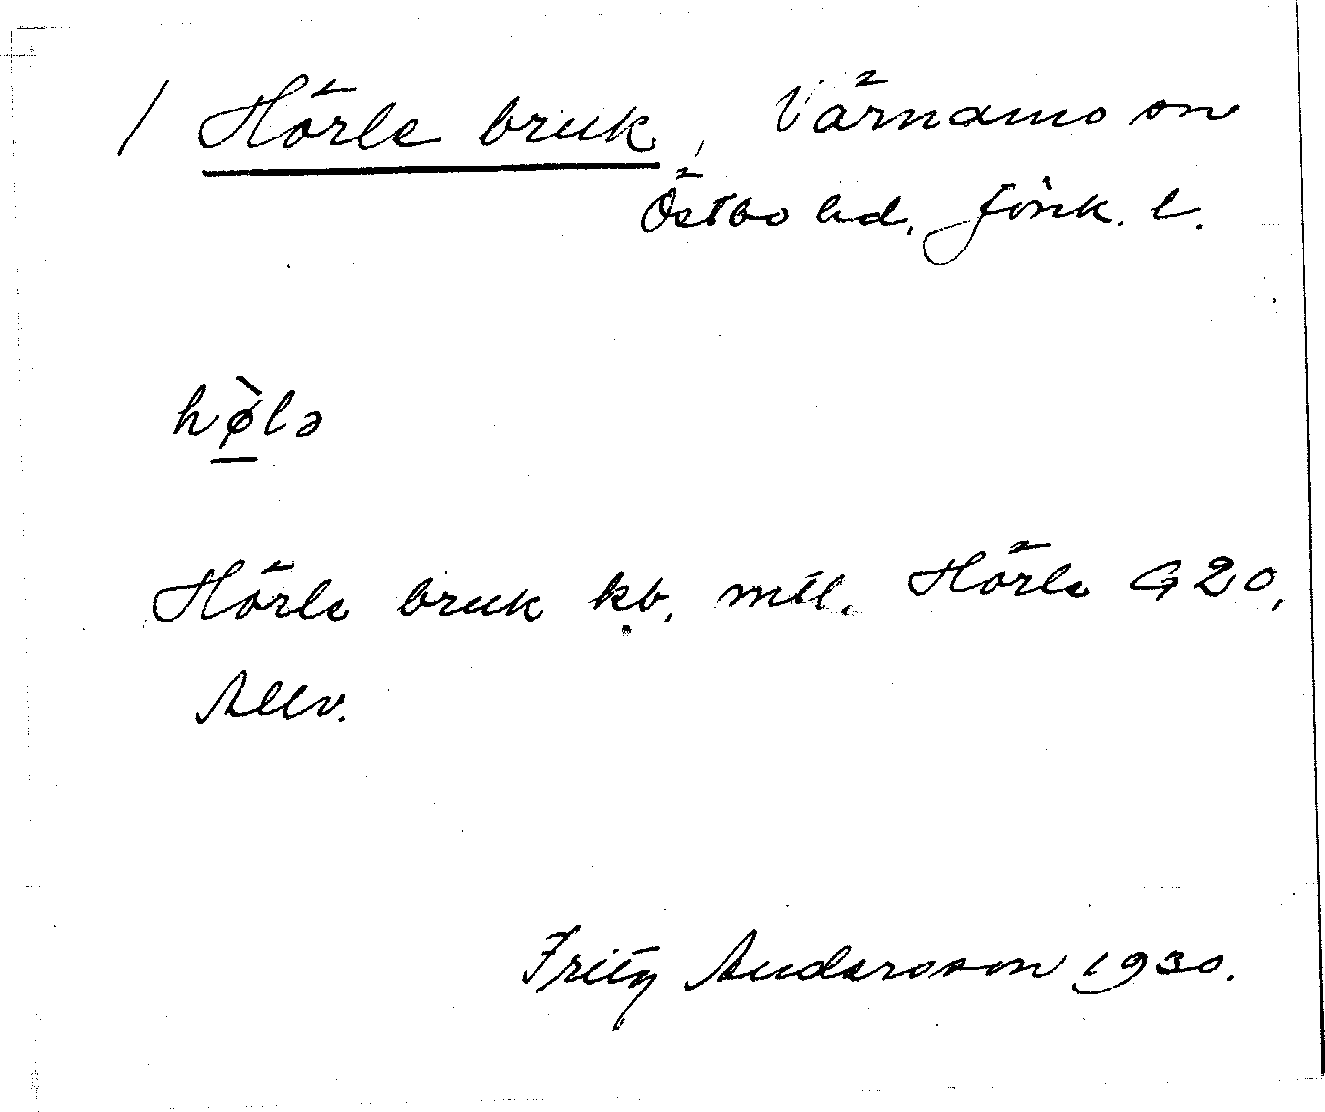 / Hörle bruk, Värnamo sn
Östbo hd, Jönk. l.
hø̀lə
Hörle bruk kb, mtl. Hörle G20,
Allv.
Fritz Andersson 1930.